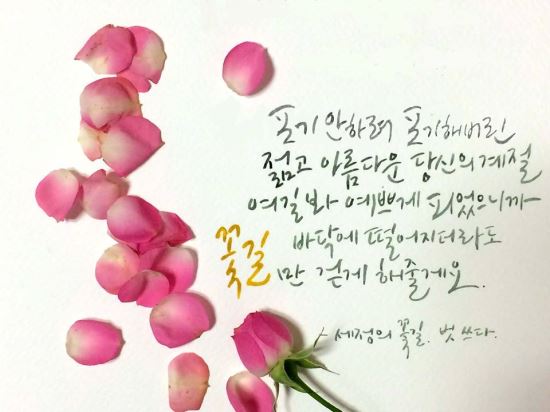 포기 안하려 포기해버린
젊고 아름다운 당신의 계절
여길봐 예쁘게 피었으니까
바닥에 떨어지더라도
꽃길만 걷게 해줄게요.
세정의 꽃길. 벗 쓰다.